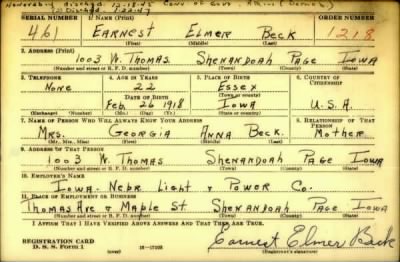 Honorably disched. 12-18-45
(2) Disched. 1-22-47
SERIAL NUMBER 1. NAME (Print) ORDER NUMBER
461 EARNEST ELMER BECK 1218
(First) (Middle) (Last)
2. ADDRESS (Print)
1003 W. THOMAS SHENANDOAH PAGE IOWA
(Number and street or R. F. D. number) (Town) (County) (State)
3. TELEPHONE 4. AGE IN YEARS 5. PLACE OF BIRTH 6. COUNTRY OF CITIZENSHIP
NONE 22 ESSEX
DATE OF BIRTH (Town or county)
FEB. 26 1918 IOWA U.S.A.
(Exchange) (Number) (Mo.) (Day) (Yr.) (State or country)
7. NAME OF PERSON WHO WILL ALWAYS KNOW YOUR ADDRESS 8. RELATIONSHIP OF THAT PERSON
MRS. GEORGIA ANNA BECK MOTHER
(Mr., Mrs., Miss) (First) (Middle) (Last)
9. ADDRESS OF THAT PERSON
1003 W. THOMAS SHENANDOAH PAGE IOWA
(Number and street or R. F. D. number) (Town) (County) (State)
10. EMPLOYER'S NAME
IOWA-NEBR. LIGHT & POWER CO.
11. PLACE OF EMPLOYMENT OR BUSINESS
THOMAS AVE & MAPLE ST. SHENANDOAH PAGE IOWA
(Number and street or R. F. D. number) (Town) (County) (State)
I AFFIRM THAT I HAVE VERIFIED ABOVE ANSWERS AND THAT THEY ARE TRUE.
REGISTRATION CARD
D. S. S. Form 1 16-17105 Earnest Elmer Beck
(Registrant's signature)